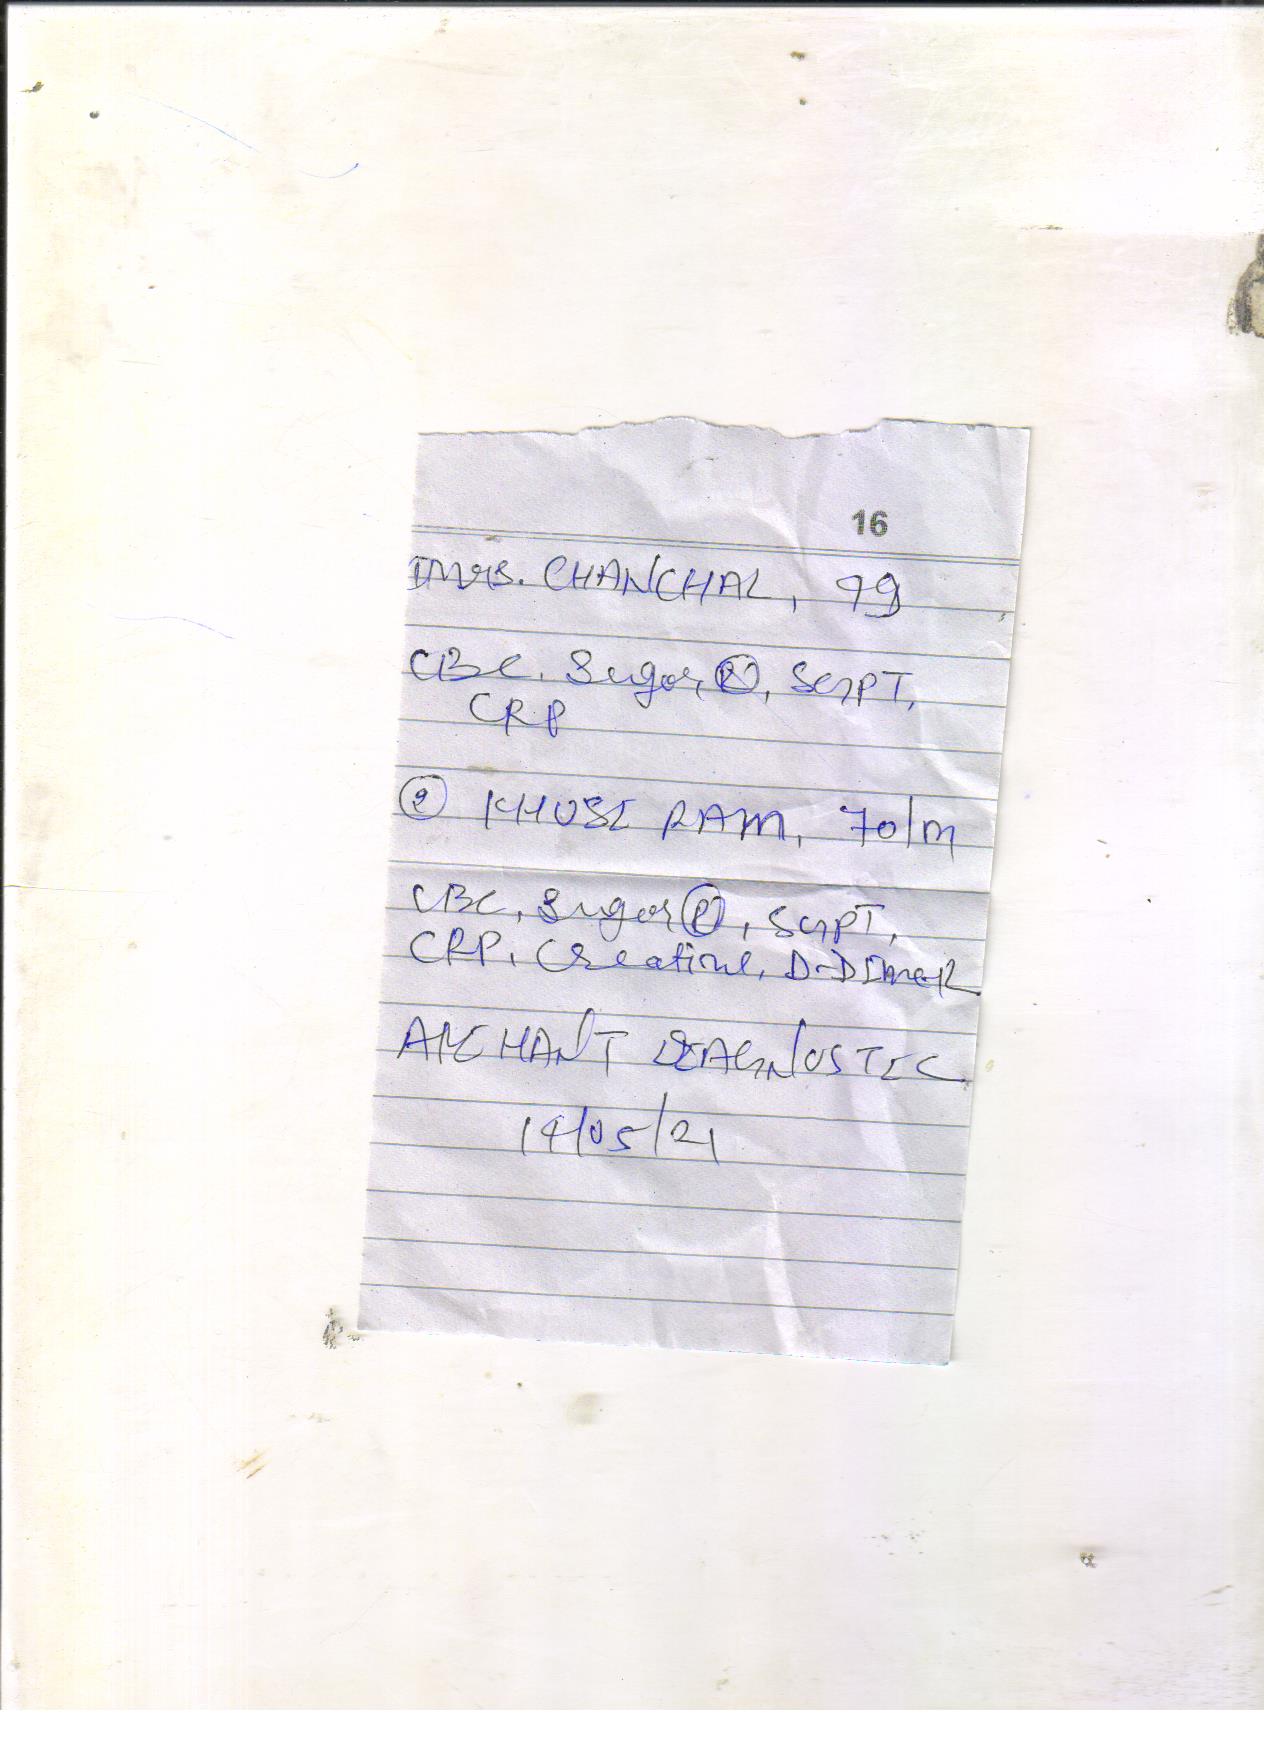 16
Mrs. CHANCHAL, 79
CBC, Sugar (R), SGPT,
CRP
(2) KHUSI RAM, 70/M
CBC, Sugar (R), SGPT,
CRP, Creatine, D-DImeR
DIAGNOSTIC
14/05/21